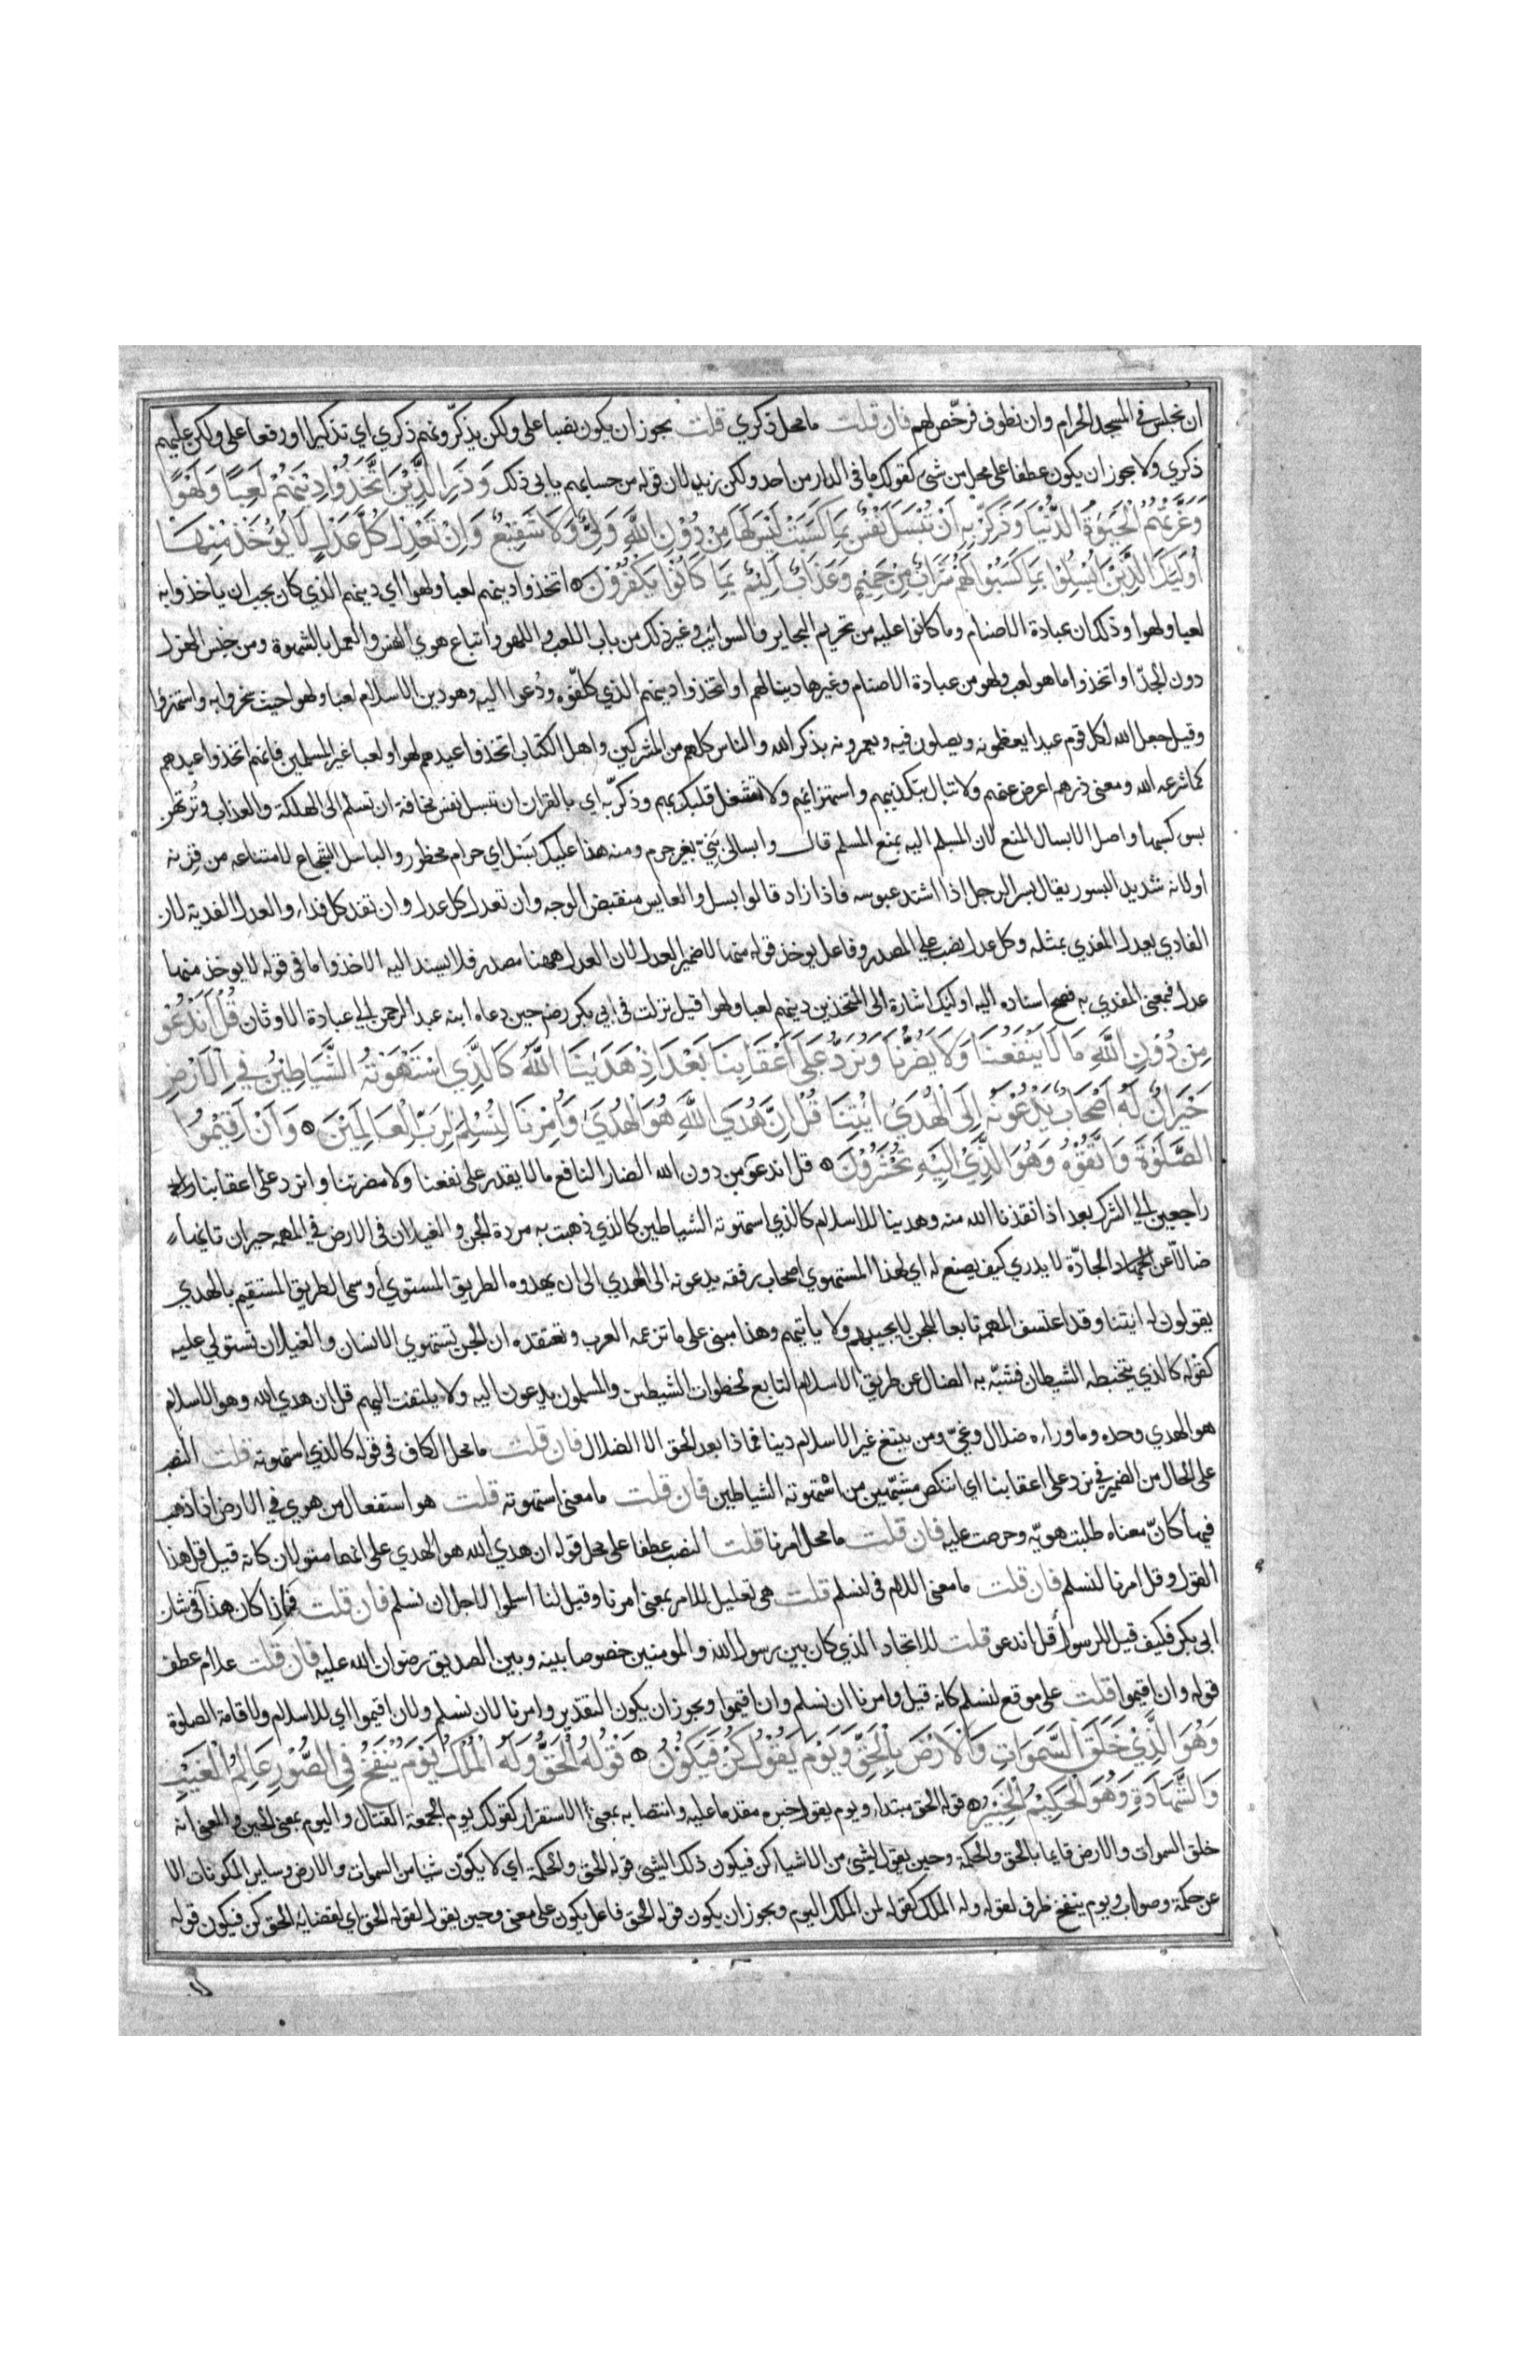 ان نجلس في المسجد الحرام وان نطوف فرخّص لهم فان قلت ما محل ذكري قلت يجوز ان يكون نصبا على ولكن يذكّرونهم ذكري اي تذكيرا او رفعا على ولكن عليهم
ذكري ولا يجوز ان يكون عطفا على محل من شئ كقولك ما في الدار من احد ولكن زيد لان قوله من حسابهم يابى ذلك وَذَرِ الَّذِيْنَ اتَّخَذُوْا دِيْنَهُمْ لَعِبًا وَلَهْوًا
وَغَرَّتْهُمُ الْحَيٰوةُ الدُّنْيَا وَذَكِّرْ بِهِ اَنْ تُبْسَلَ نَفْسٌ بِمَا كَسَبَتْ لَيْسَ لَهَا مِنْ دُوْنِ اللَّهِ وَلِيٌّ وَلَا شَفِيْعٌ وَاِنْ تَعْدِلْ كُلَّ عَدْلٍ لَا يُؤْخَذْ مِنْهَا
اُولٰئِكَ الَّذِيْنَ اُبْسِلُوْا بِمَا كَسَبُوْا لَهُمْ شَرَابٌ مِنْ حَمِيْمٍ وَعَذَابٌ اَلِيْمٌ بِمَا كَانُوْا يَكْفُرُوْنَ اتخذوا دينهم لعبا ولهوا اي دينهم الذي كان يجب ان ياخذوا به
لعبا ولهوا وذلك ان عبادة الاصنام وما كانوا عليه من تحريم البحاير والسوائب وغير ذلك من باب اللعب واللهو واتباع هوي النفس والعمل بالشهوة ومن جنس الهزل
دون الجدّ او اتخذوا ما هو لعب ولهو من عبادة الاصنام وغيرها دينا لهم او اتخذوا دينهم الذي كلّفوه ودُعوا اليه وهو دين الاسلام لعبا ولهوا حيث سخروا به واستهزؤا
وقيل جعل الله لكل قوم عيدا يعظمونه ويصلون فيه ويعمرونه بذكر الله والناس كلهم من المشركين واهل الكتاب اتخذوا عيدهم لهوا ولعبا غير المسلمين فانهم اتخذوا عيدهم
كما شرعه الله ومعنى ذرهم اعرض عنهم ولا تبال بتكذيبهم واستهزائهم ولا تشغل قلبك بهم وذكّر به اي بالقران ان تبسل نفس مخافة ان تسلم الى الهلكة والعذاب وتُرتهن
بسوء كسبها واصل الابسال المنع لان المسلم اليه يمنع المسلم قال وابسالى بَنِيّ بغير جرم ومنه هذا عليك بَسْل اي حرام محظور والباسل الشجاع لامتناعه من قِرنه
او لانه شديد البسور يقال بسر الرجل اذا اشتد عبوسه فاذا زاد قالوا بسل والعابس منقبض الوجه وان تعدل كل عدل وان تفد كل فداء والعدل الفدية لان
الفادي يعدل المفدي بمثله وكل عدل نصب على المصدر وفاعل يوخذ قوله منها لا ضمير العدل لان العدل ههنا مصدر فلا يسند اليه الاخذ واما في قوله لا يوخذ منها
عدل فبمعنى المفدي به فصح اسناده اليه اولئك اشارة الى المتخذين دينهم لعبا ولهوا قيل نزلت في ابي بكر رضه حين دعاه ابنه عبد الرحمن الى عبادة الاوثان قُلْ اَنَدْعُوْ
مِنْ دُوْنِ اللَّهِ مَا لَا يَنْفَعُنَا وَلَا يَضُرُّنَا وَنُرَدُّ عَلَى اَعْقَابِنَا بَعْدَ اِذْ هَدٰيْنَا اللَّهُ كَالَّذِي اسْتَهْوَتْهُ الشَّيَاطِيْنُ فِي الْاَرْضِ
حَيْرَانَ لَهُ اَصْحَابٌ يَدْعُوْنَهُ اِلَى الْهُدَى ائْتِنَا قُلْ اِنَّ هُدَى اللَّهِ هُوَ الْهُدَى وَاُمِرْنَا لِنُسْلِمَ لِرَبِّ الْعَالَمِيْنَ وَاَنْ اَقِيْمُوْا
الصَّلٰوةَ وَاتَّقُوْهُ وَهُوَ الَّذِيْ اِلَيْهِ تُحْشَرُوْنَ قل اندعو من دون الله الضار النافع ما لا يقدر على نفعنا ولا مضرتنا ونرد على اعقابنا
راجعين الى الشرك بعد اذ انقذنا الله منه وهدينا للاسلام كالذي استهوته الشياطين كالذي ذهبت به مردة الجن والغيلان في الارض في المهمه حيران تايها
ضالّا عن الجادّة لا يدري كيف يصنع له اي لهذا المستهوي اصحاب رفقه يدعونه الى الهدي الى ان يهدوه الطريق المستوي او سمى الطريق المستقيم بالهدي
يقولون له ايتنا وقد اعتسف المهمه تابعا للجن لا يجيبهم ولا ياتيهم وهذا مبنى على ما تزعمه العرب وتعتقده ان الجن تستهوي الانسان والغيلان تستولي عليه
كقوله كالذي يتخبطه الشيطان فشبّه به الضال عن طريق الاسلام التابع لخطوات الشيطن والمسلمون يدعون اليه ولا يلتفت اليهم قل ان هدي الله وهو الاسلام
هو الهدي وحده وما وراءه ضلال وغيّ ومن يبتغ غير الاسلام دينا فما ذا بعد الحق الا الضلال فان قلت ما محل الكاف في قوله كالذي استهوته قلت النصب
على الحال من الضمير في نرد على اعقابنا اي اننكص مشبّهين من استهوته الشياطين فان قلت ما معنى استهوته قلت هو استفعال من هوي في الارض اذا ذهب
فيها كانّ معناه طلبت هويّه وحرصت عليه فان قلت ما محل امرنا قلت النصب عطفا على محل قوله ان هدي الله هو الهدي على انهما مقولان كانه قيل قل هذا
القول وقل امرنا لنسلم فان قلت ما معنى اللام في لنسلم قلت هي تعليل للامر بمعنى امرنا وقيل لنا اسلموا لاجل ان نسلم فان قلت فاذا كان هذا في شان
ابي بكر فكيف قيل للرسول قل اندعو قلت للاتحاد الذي كان بين رسول الله والمومنين خصوصا بينه وبين الصديق رضوان الله عليه فان قلت علام عطف
قوله وان اقيموا قلت على موقع لنسلم كانه قيل وامرنا ان نسلم وان اقيموا ويجوز ان يكون التقدير وامرنا لان نسلم ولان اقيموا اي للاسلام ولاقامة الصلوة
وَهُوَ الَّذِيْ خَلَقَ السَّمٰوَاتِ وَالْاَرْضَ بِالْحَقِّ وَيَوْمَ يَقُوْلُ كُنْ فَيَكُوْنُ قَوْلُهُ الْحَقُّ وَلَهُ الْمُلْكُ يَوْمَ يُنْفَخُ فِي الصُّوْرِ عَالِمُ الْغَيْبِ
وَالشَّهَادَةِ وَهُوَ الْحَكِيْمُ الْخَبِيْرُ قوله الحق مبتداء ويوم يقول خبره مقدما عليه وانتصابه بمعنى الاستقرار كقولك يوم الجمعة القتال واليوم بمعنى الحين والمعنى انه
خلق السموات والارض قايما بالحق والحكمة وحين يقول لشئ من الاشياء كن فيكون ذلك الشئ قوله الحق والحكمة اي لا يكوّن شيا من السموات والارض وساير المكونات الا
عن حكمة وصواب ويوم ينفخ ظرف لقوله وله الملك كقوله لمن الملك اليوم ويجوز ان يكون قوله الحق فاعل يكون على معنى وحين يقول لقوله الحق اي لقضايه الحق كن فيكون قوله